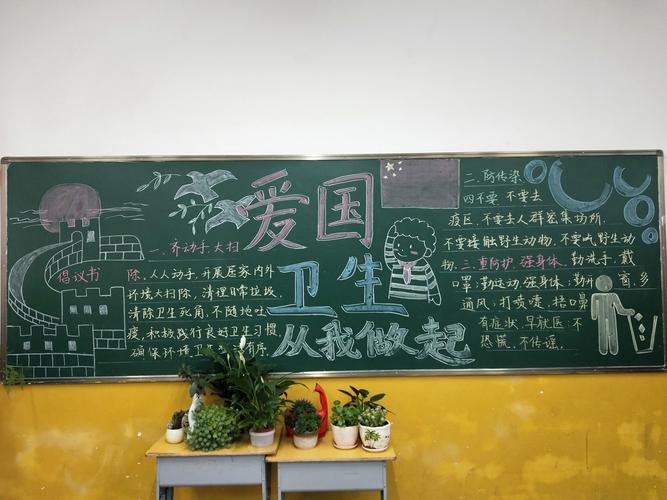 倡议书
一、齐动手、大扫
除，人人动手，开展居家内外
环境大扫除，清理日常垃圾，
清除卫生死角，不随地吐
痰，积极践行良好卫生习惯
确保环境卫 有序.
爱国
卫生
从我做起
二、防传染
四不要 不要去
疫区，不要去人群密集场所，
不要接触野生动物，不要吃野生动
物.三.重防护.强身体.勤洗手，戴
口罩；勤运动，强身体；勤 窗，多
通风；打喷嚏，捂口鼻
有症状，早就医；不
恐慌，不传谣。